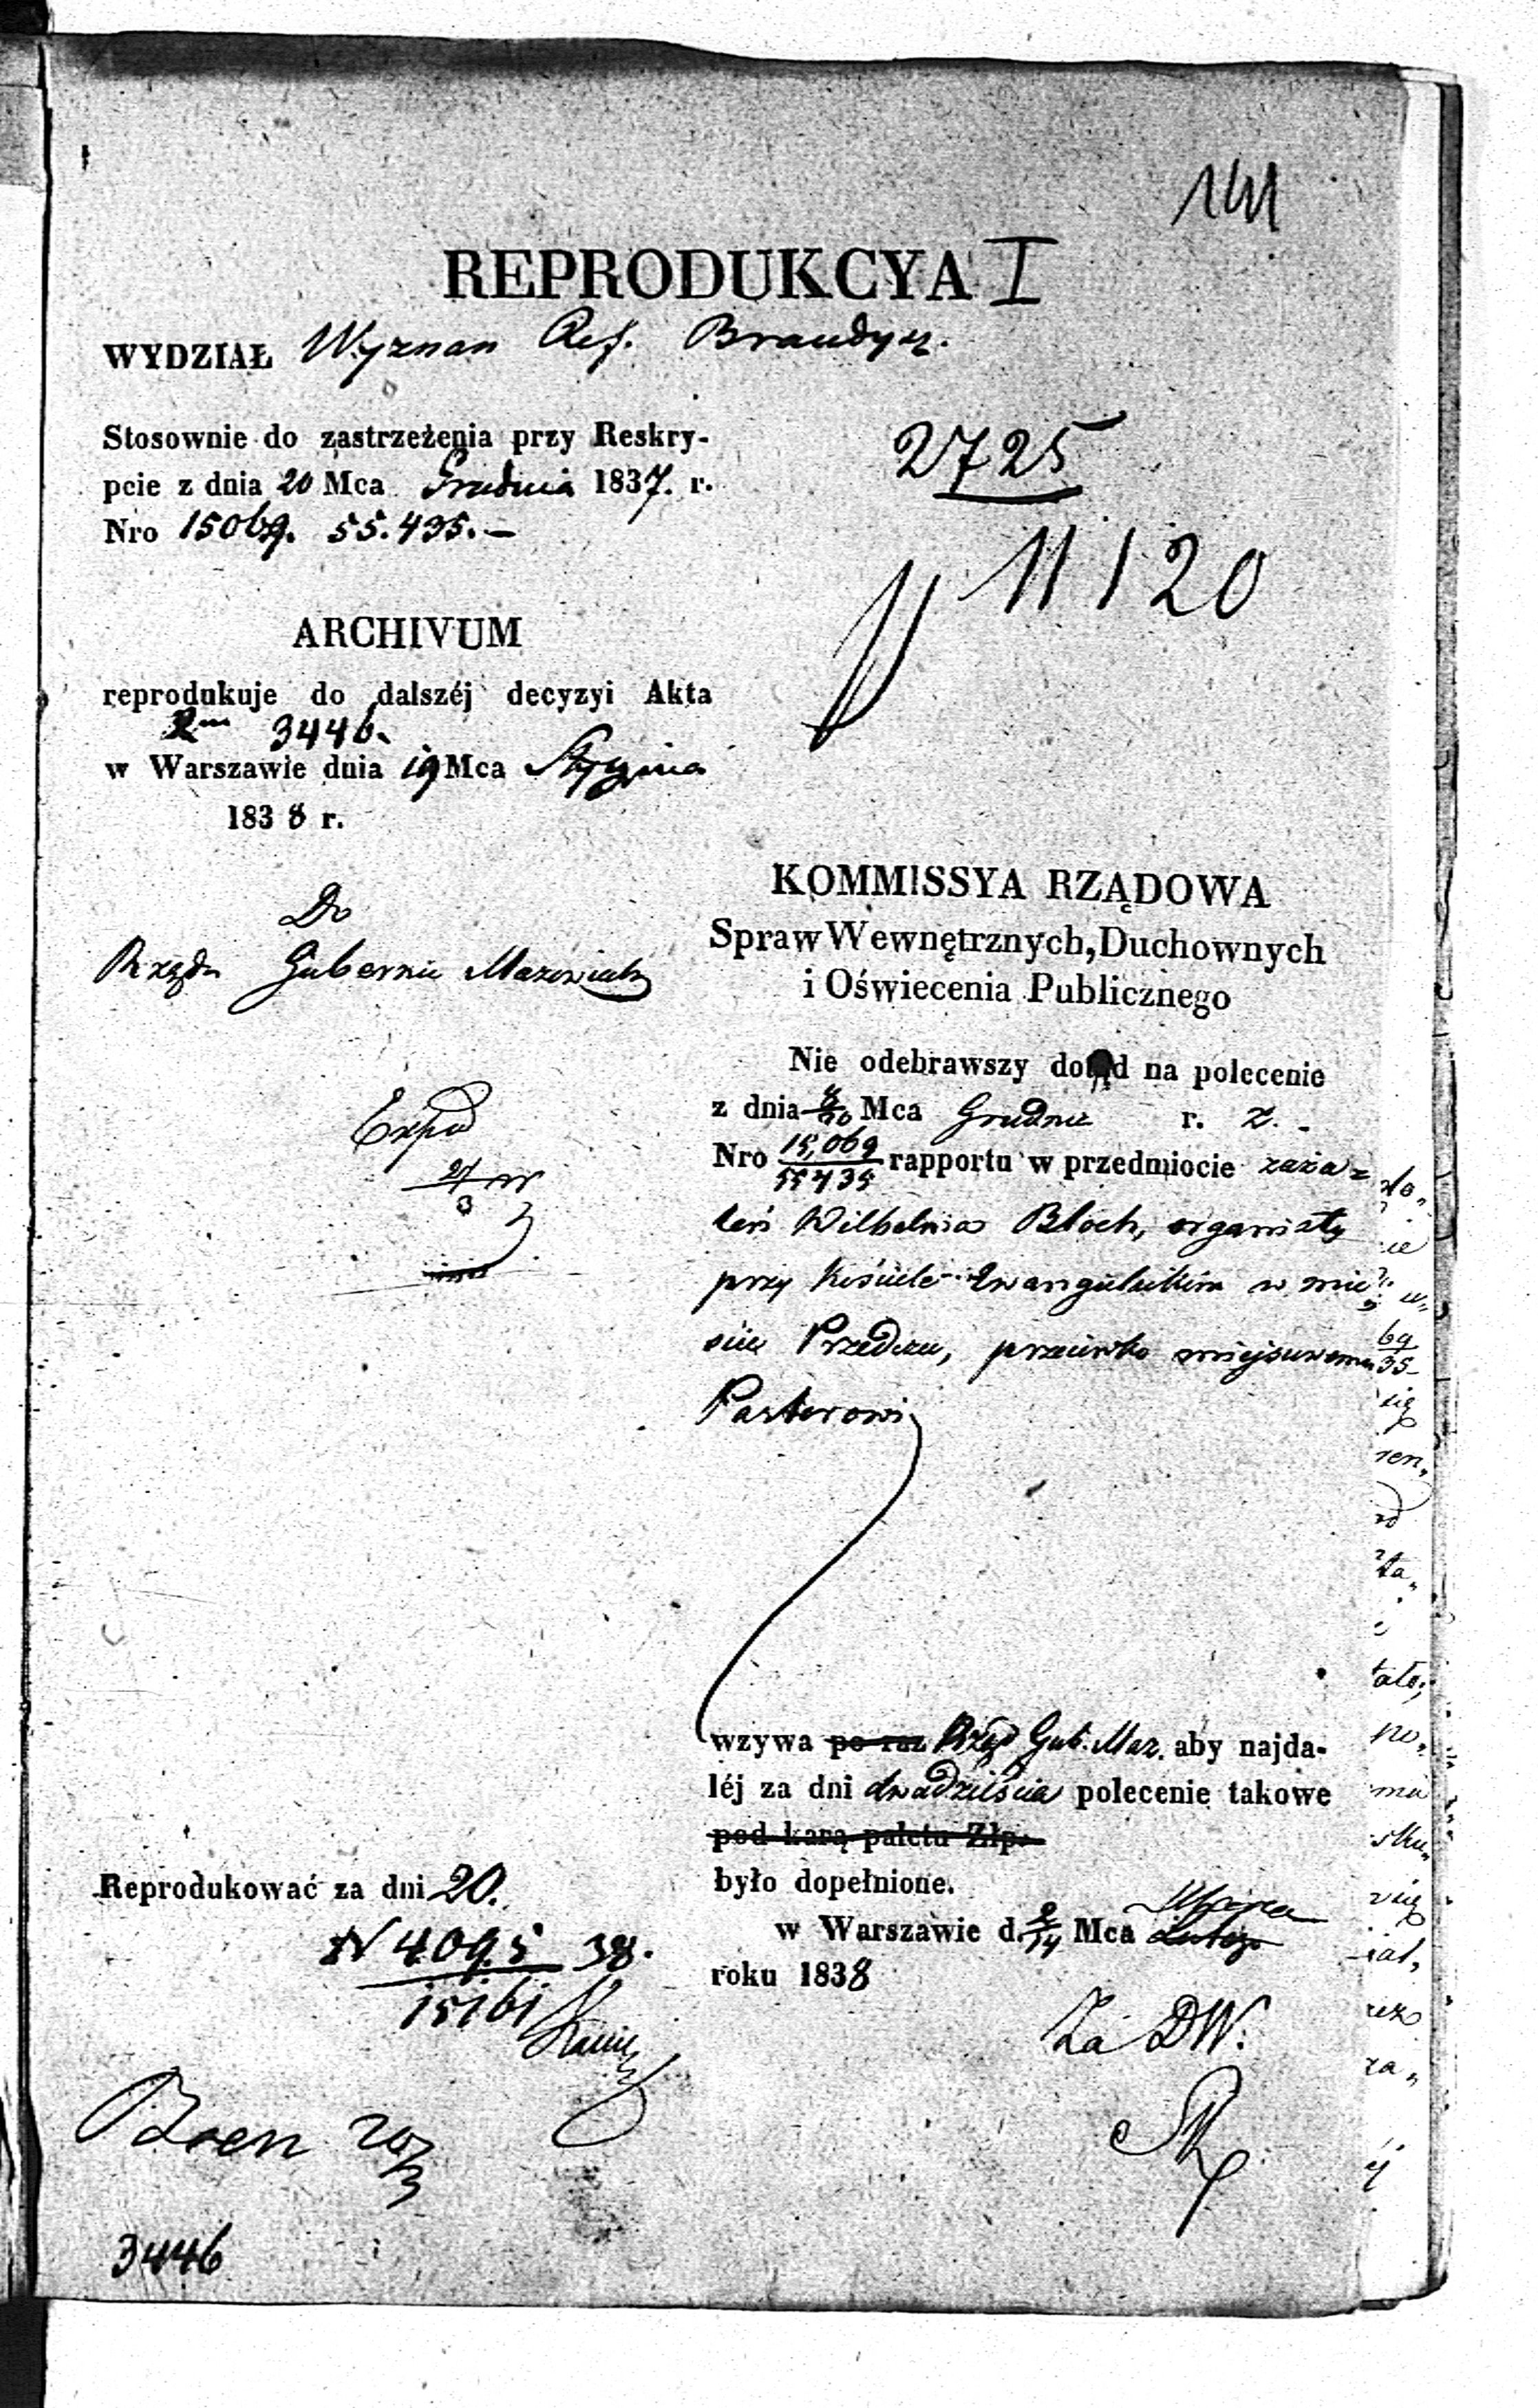 141
REPRODUKCYA I
WYDZIAŁ Wyznan Ref. Brandysz.
Stosownie do zastrzeżenia przy Reskry-
pcie z dnia 20 Mca Grudnia 1837. r.
Nro 15069. 55.435.—
2725
11120
ARCHIVUM
reprodukuje do dalszéj decyzyi Akta
3446.
w Warszawie dnia 19 Mca Stycznia
1838 r.
Do
Rządu Gubernii Mazowieck
Expd
21/3
KOMMISSYA RZĄDOWA
Spraw Wewnętrznych, Duchownych
i Oświecenia Publicznego
Nie odebrawszy dotąd na polecenie
z dnia 8/20 Mca Grudnia r. z. -
Nro 15,069/55435 rapportu w przedmiocie zaża=
leń Wilhelma Bloch, organisty
przy Kościele Ewangelickim w mie=
ście Przedczu, przeciwko miejscowemu
Pastorowi
wzywa po raz Rząd Gub. Maz. aby najda-
léj za dni dwadzieścia polecenie takowe
pod karą paletu Złp.
było dopełnione.
w Warszawie d. 2/14 Mca Lutego Marca
roku 1838
Za DW.
Reprodukować za dni 20.
N 4095 38.
15161
20/3
3446